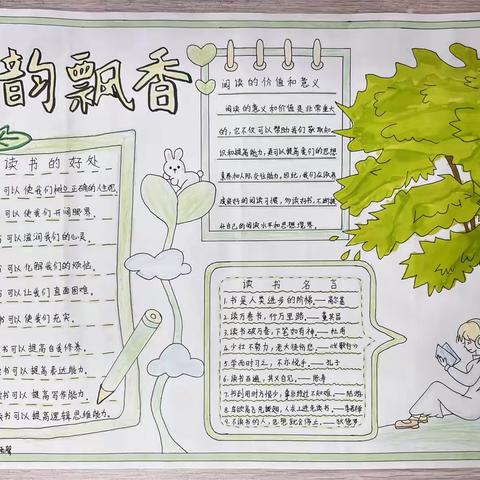 韵飘香
读书的好处
可以使我们树立正确的人生观
可以使我们开阔眼界.
可以滋润我们的心灵.
可以化解我们的烦恼.
可以让我们直面困难.
书可以使我们充实.
书可以提高自我修养.
书可以提高表达能力.
读书可以提高写作能力.
读书可以提高逻辑思维能力.
阅读的价值和意义
阅读的意义和价值是非常重大
的,它不仅可以帮助我们获取知
识和提高能力,更可以提高我们的思想
素养和人际交往能力.因此,我们应该养
成良好的阅读习惯,多读好书,不断提
升自己的阅读水平和思想境界.
读书名言
1.书是人类进步的阶梯.——高尔基
2.读万卷书,行万里路.——董其昌
3.读书破万卷,下笔如有神.——杜甫
4.少壮不努力,老大徒伤悲.——《长歌行》
5.学而时习之,不亦悦乎.——孔子
6.读书百遍,其义自见.
7.书到用时方恨少,事非经过不知难.——陆游
8.鸟欲高飞先振翅,人求上进先读书.——李苦禅
9.不读书的人,思想就会停止.——狄德罗